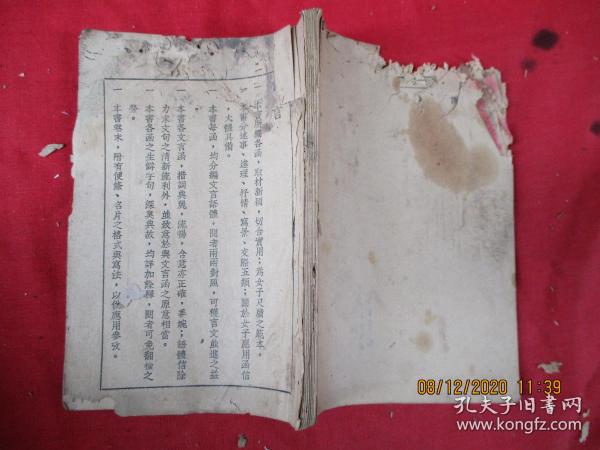 言
一 本書所編各函，取材新穎，切合實用；為女子尺牘之範本。
一 本書分述事、達理、抒情、寫景、交際五類；關於女子應用函信
，大體具備。
一 本書每函，均分編文言語體，閱者兩兩對照，可獲言文並進之益
。
一 本書各文言函，措詞典麗，流暢，含意亦正確，委婉；語體信除
力求文句之清新流利外，並致意於與文言函之原意相當。
一 本書各函之生僻字句，深奧典故，均詳加詮釋，閱者可免翻檢之
勞。
一 本書卷末，附有便條、名片之格式與寫法，以供應用參攷。
08/12/2020 11:39
孔夫子旧书网
www.kongfz.com